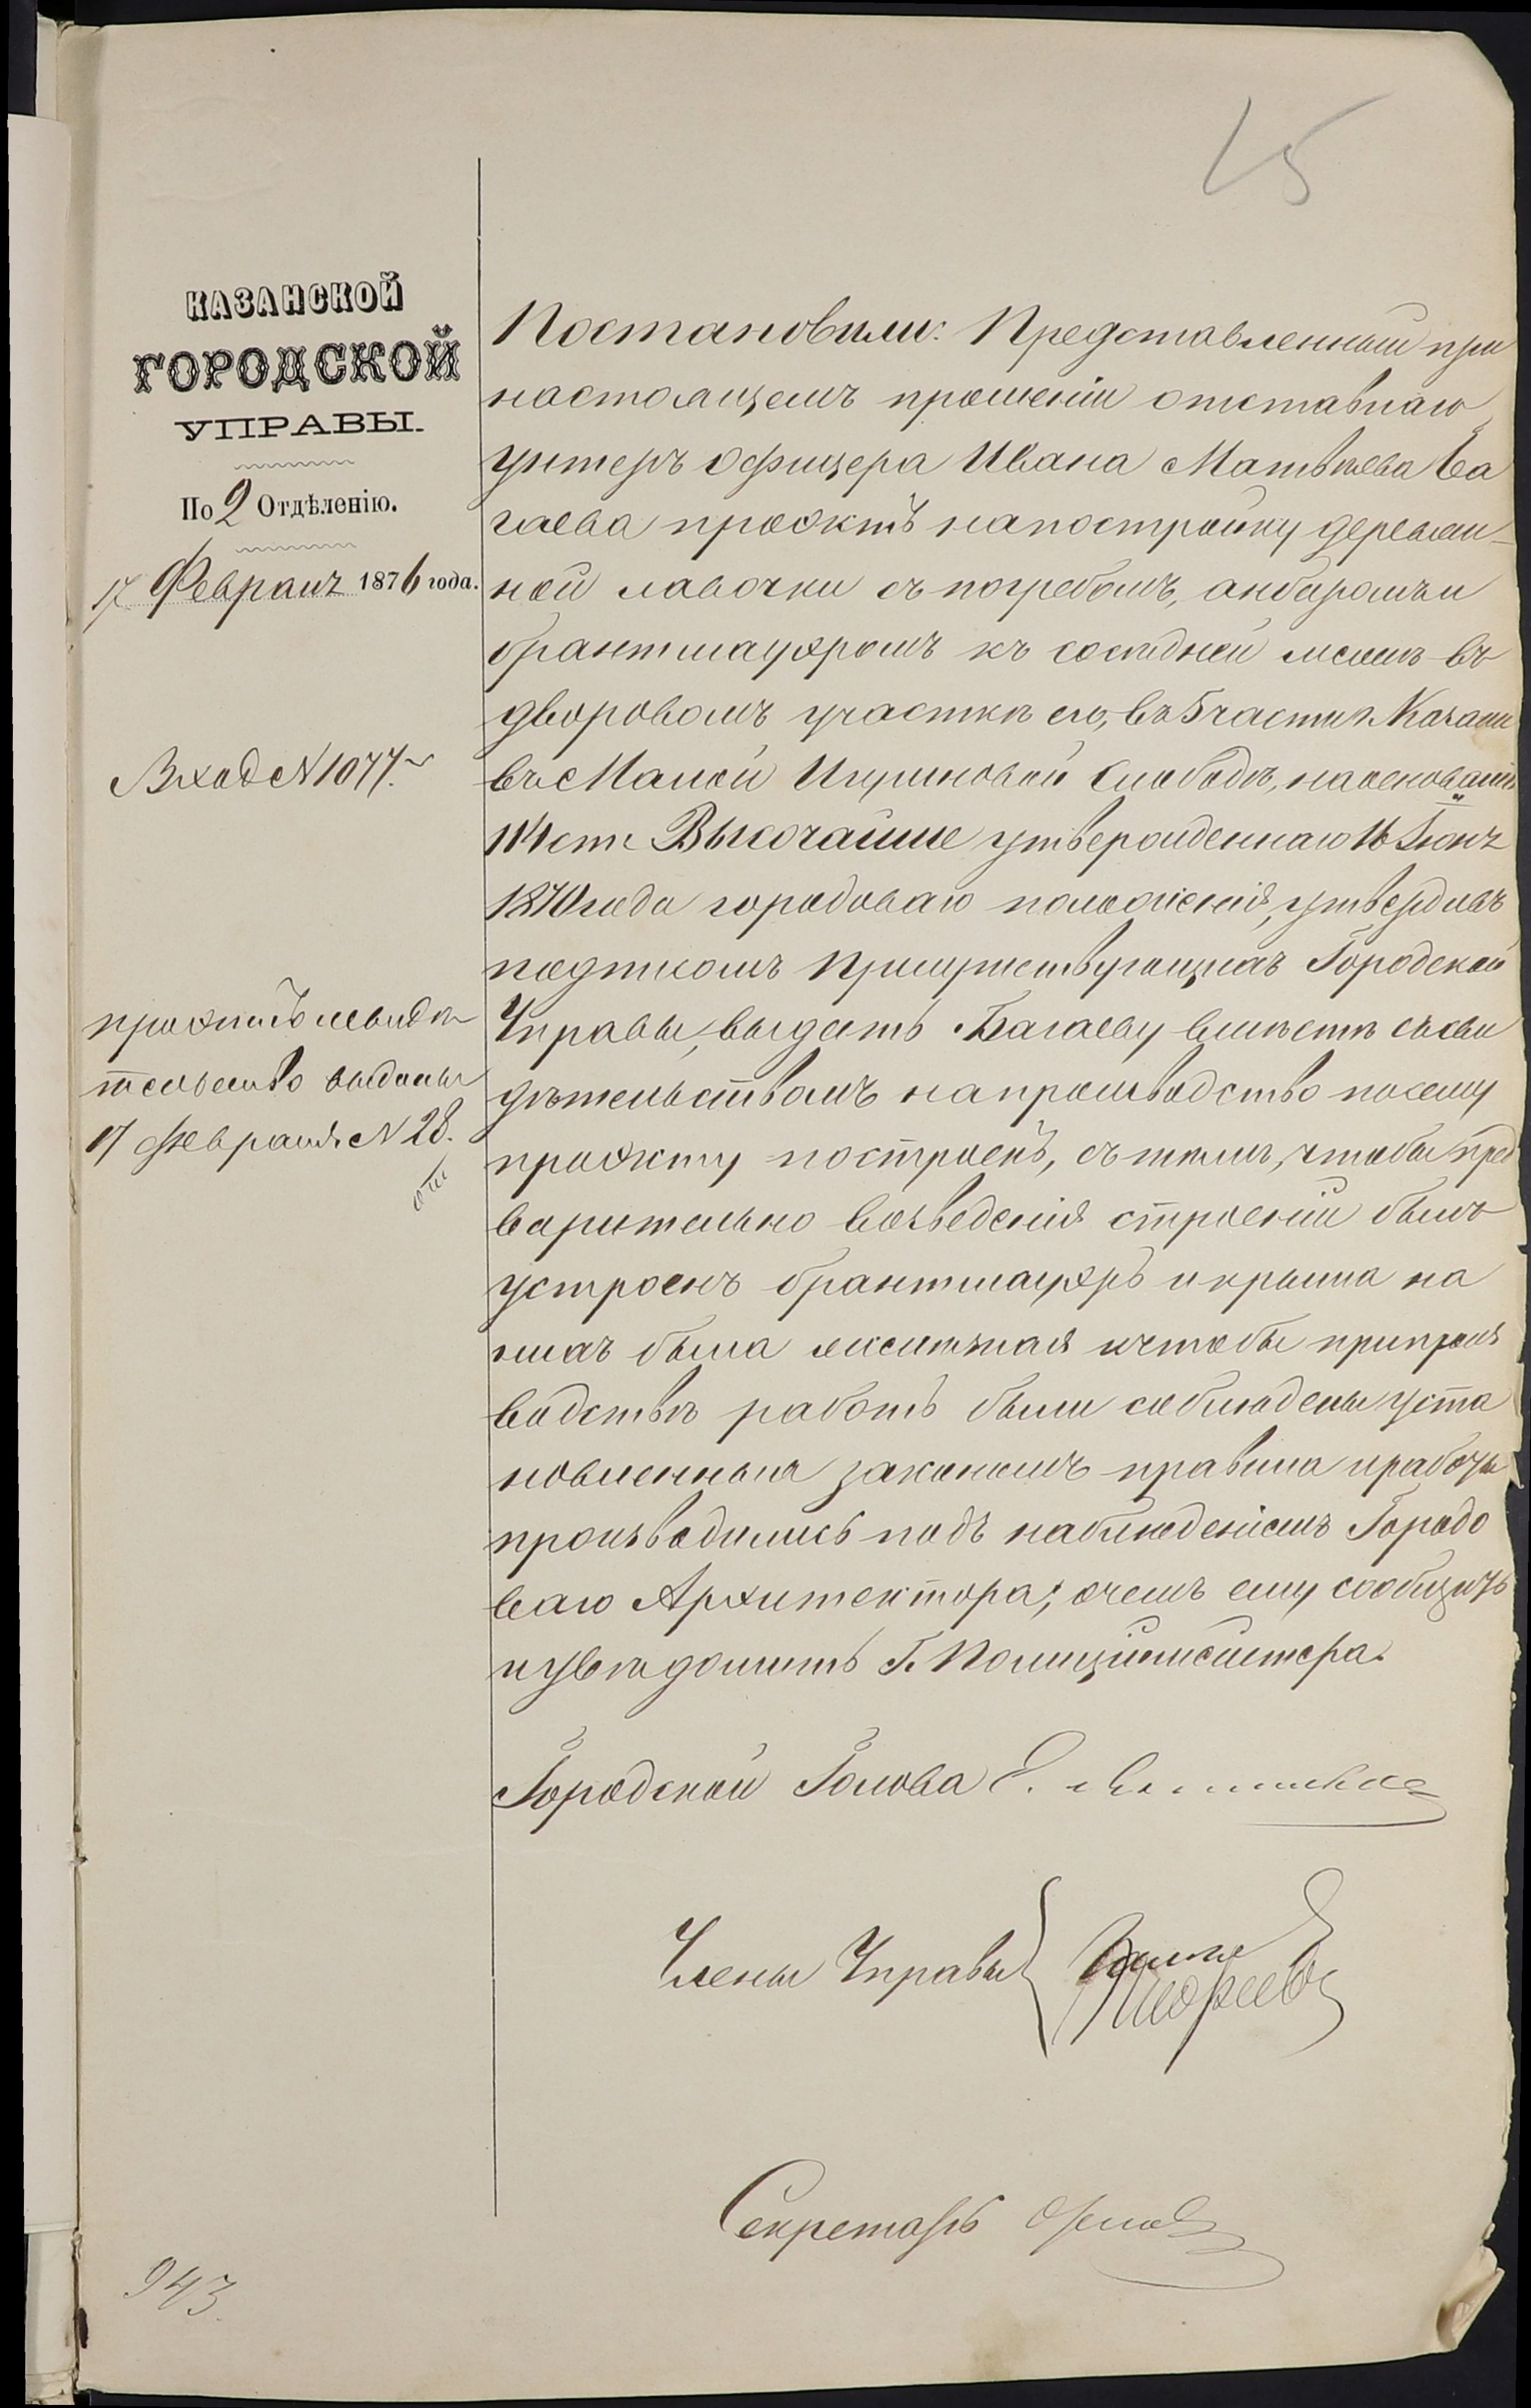 15
КАЗАНСКОЙ
ГОРОДСКОЙ
УПРАВЫ.
По 2 Отдѣленію.
17 Февраля 1876 года.
Вход № 1077.
проэктъ и свидѣ
тельство выданы
17 февраля № 28.
Постановили: Представленный при
настоящемъ прошеніи отставнаго
унтеръ офицера Ивана Матвѣева Ба
гаева проэктъ на постройку деревян-
ной лавочки съ погребомъ, анбаромъ и
брантмауэромъ къ сосѣдней межѣ въ
дворовомъ участкѣ его, въ 5 части г. Казани
въ Малой Игумновой Слободѣ, на основаніи
114 ст. Высочайше утвержденнаго 16 Іюня
1870 года городоваго положенія, утвердивъ
подписомъ Присутствующихъ Городской
Управы, выдать Багаеву вмѣстѣ съ сви
дѣтельствомъ на производство по сему
проэкту построекъ, съ тѣмъ, чтобы пред
варительно возведенія строеній былъ
устроенъ брантмауэръ и крыша на
нихъ была желѣзная и чтобы при произ
водствѣ работъ были соблюдены уста
новленныя закономъ правила и работы
производились подъ наблюденіемъ Городо
ваго Архитектора; о чемъ ему сообщить
и увѣдомить Г. Полиціймейстера.
Городской Голова
Члены Управы
Андреевъ
Секретарь
943.